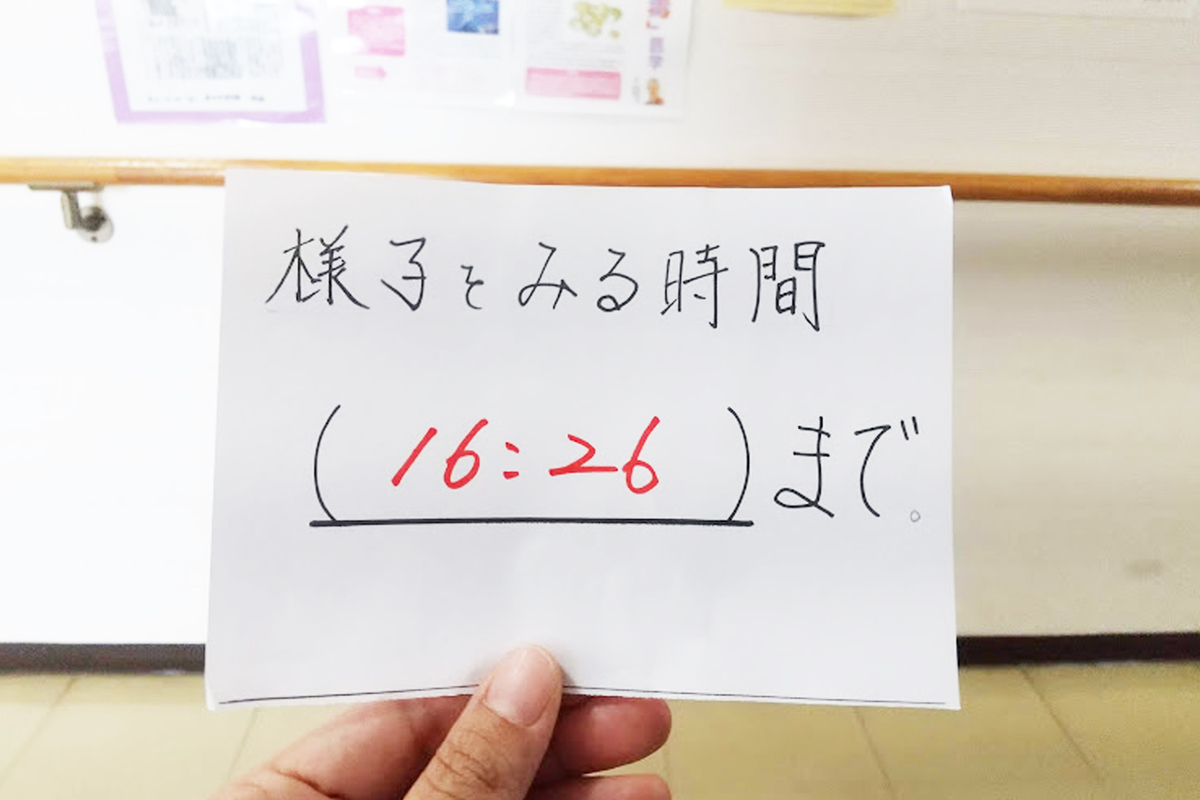 様子をみる時間
(16:26)まで。